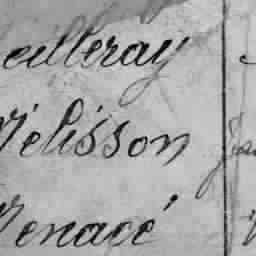 eilleray
Mélisson
Menacé